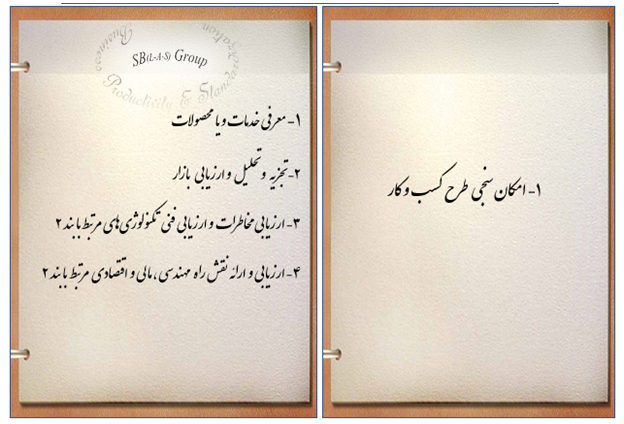 SB(L-A-S) Group
Productivity & Standardization
Business
۱- معرفی خدمات و یا محصولات
۲- تجزیه و تحلیل و ارزیابی بازار
۳- ارزیابی مخاطرات و ارزیابی فنی تکنولوژی های مرتبط با بند ۲
۴- ارزیابی و ارائه نقش راه مهندسی، مالی و اقتصادی مرتبط با بند ۲
۱- امکان سنجی طرح کسب و کار